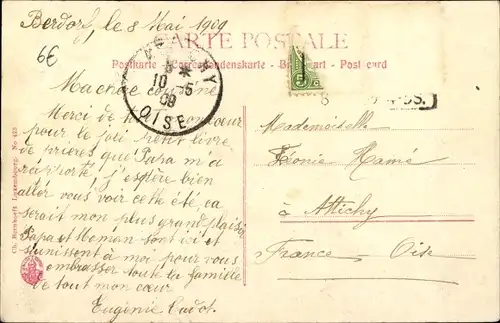 Berdorf, le 8 Mai 1909
6€
CARTE POSTALE
Postkarte - Correspondenzkarte - Post card
10 -5
09
OISE
5
Ma chère
Merci de tout cœur
pour le joli petit livre
de prières que Papa m'a
rapporté, j'espère bien
aller vous voir cette été, ça
serait mon plus grand plaisir
Papa et Maman sont ici et
s'unissent à moi pour vous
embrasser toute la famille
de tout mon cœur
Eugénie
Mademoiselle
Léonie
à Attichy
France - Oise
Luxembourg. No 453